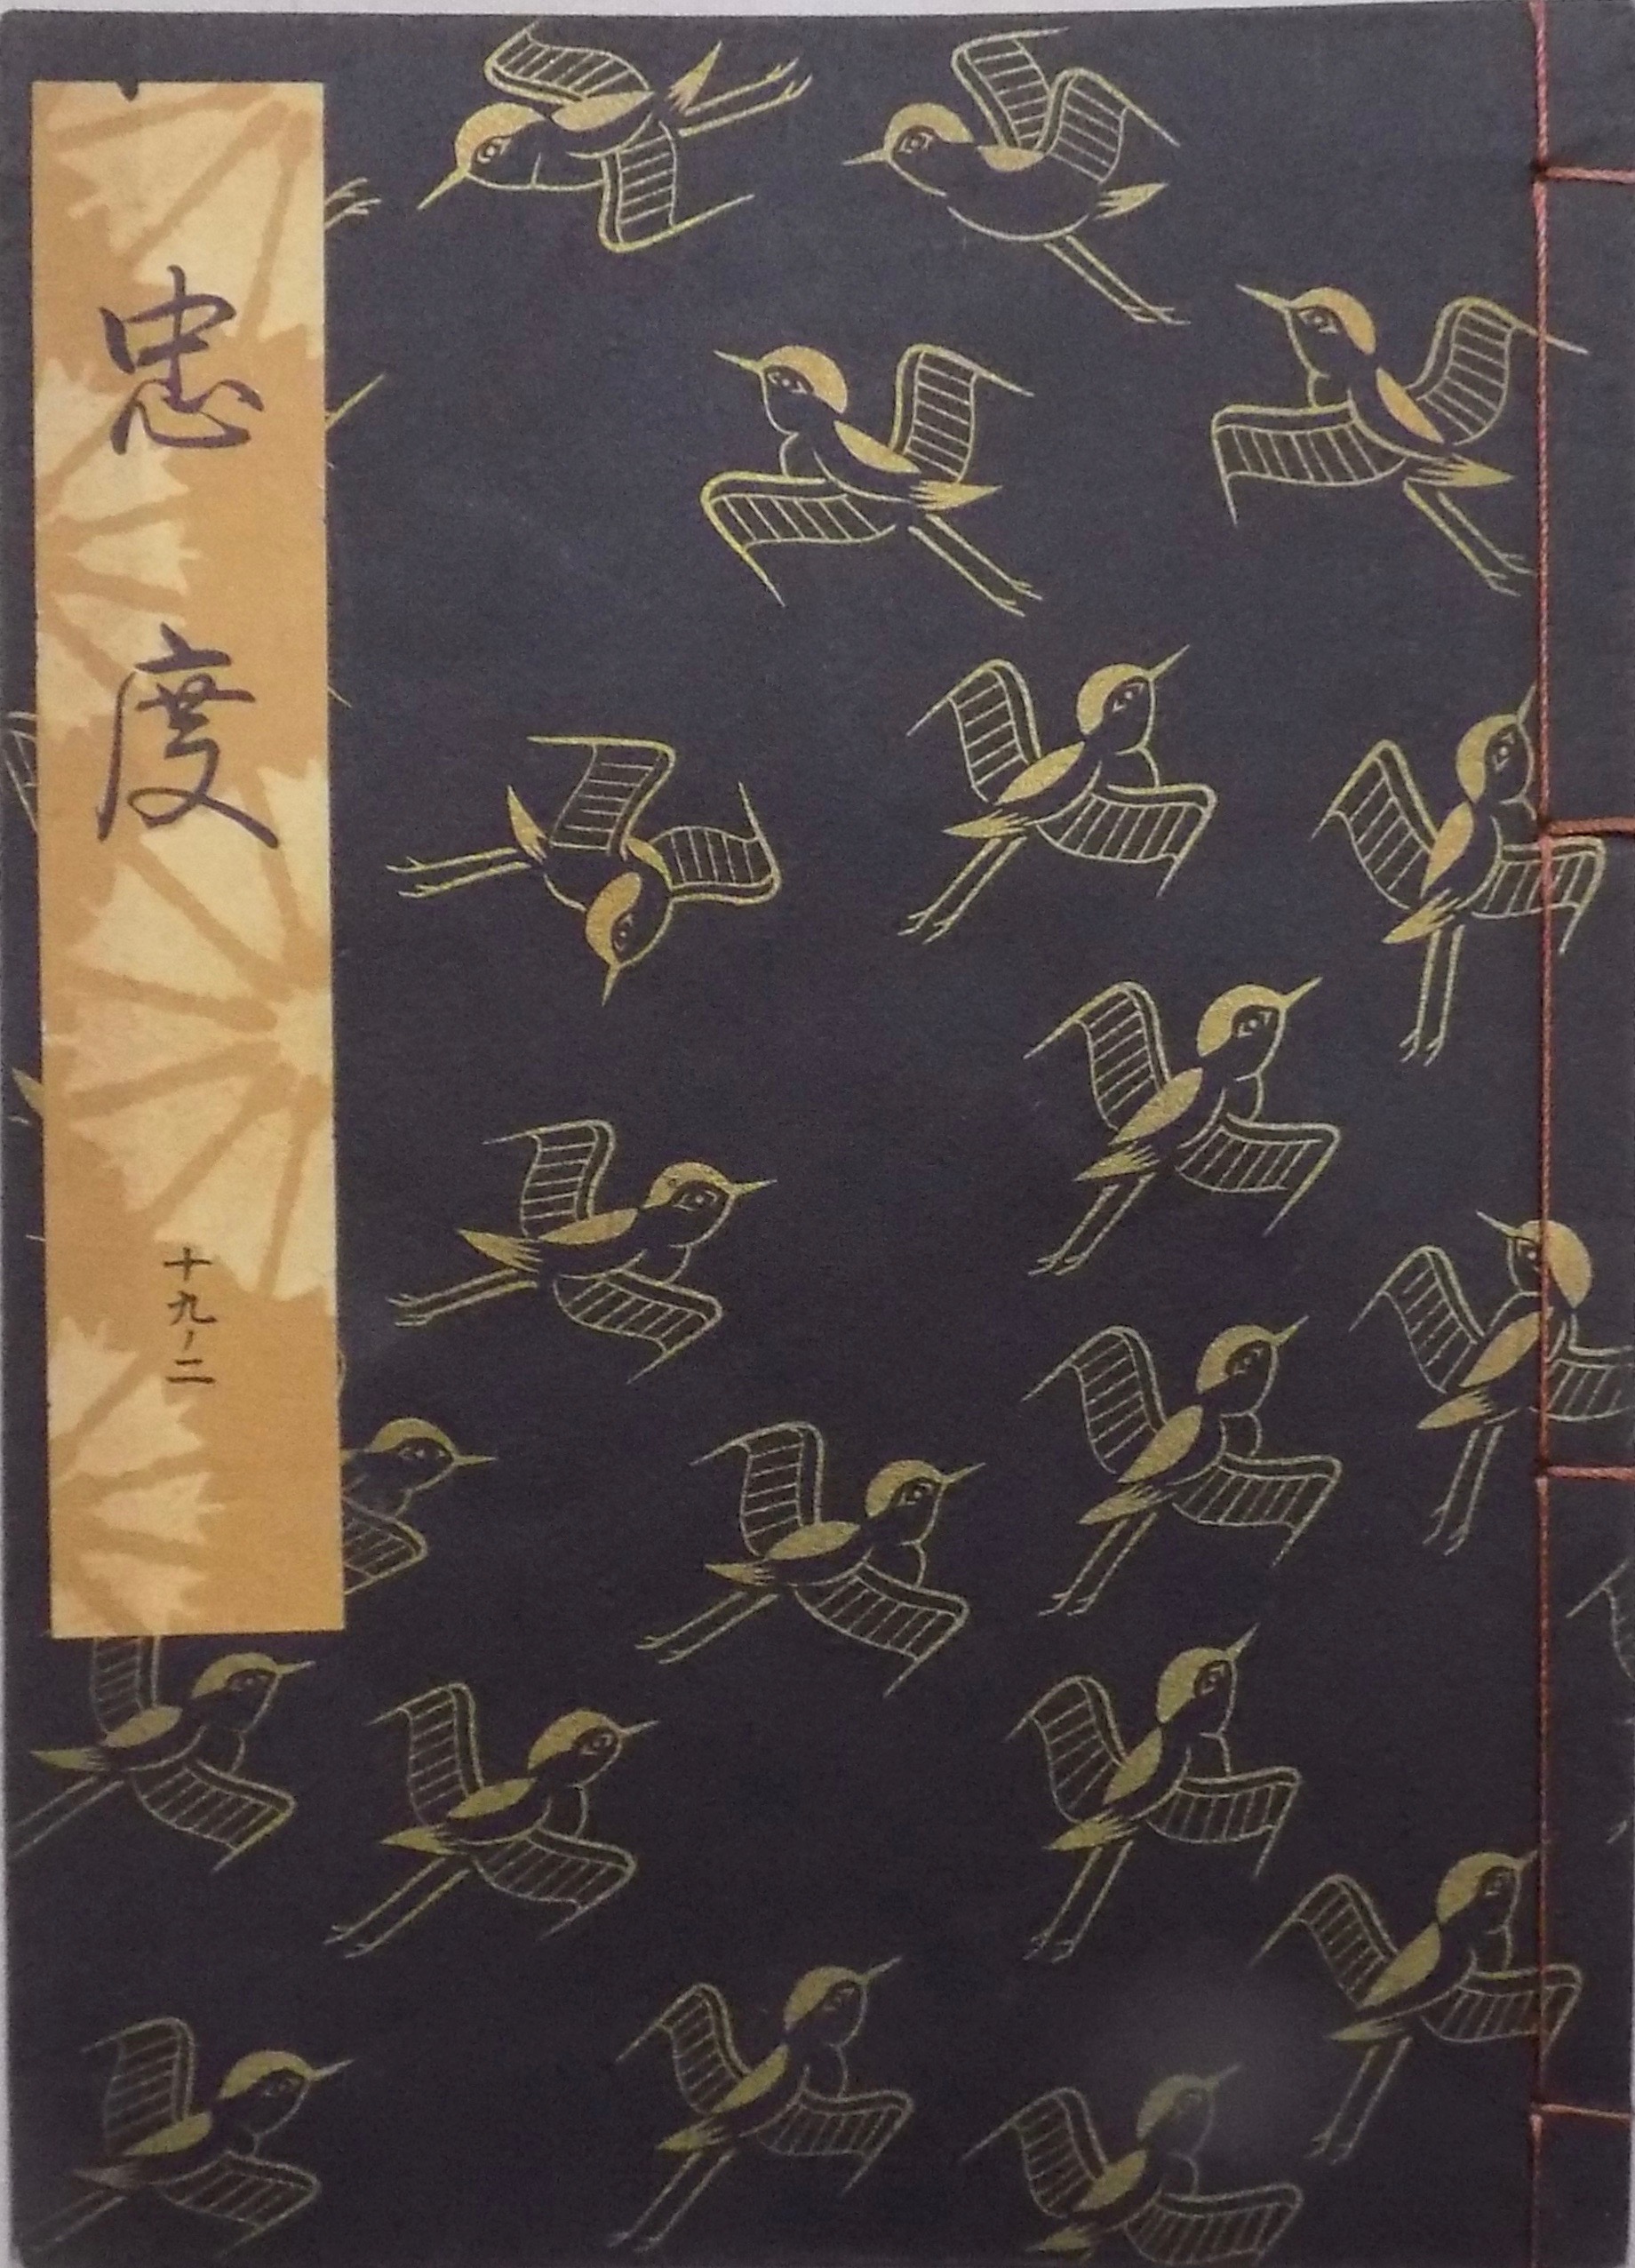 忠度
十九ノ二